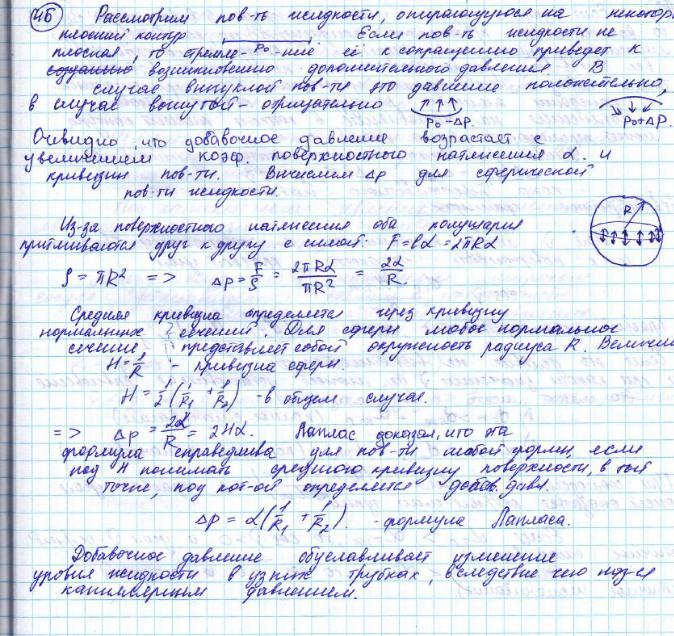 45 Рассмотрим пов-ть жидкости, опирающуюся на некотор
плоский контур Если пов-ть жидкости не
плоская, то стремле- P₀ -ние её к сокращению приведет к
возникновению дополнительного давления. В
случае выпуклой пов-ти это давление положительно,
в случае вогнутой - отрицательно
P₀-ΔP. P₀+ΔP.
Очевидно, что добавочное давление возрастает с
увеличением коэф. поверхностного натяжения α и
кривизны пов-ти. Вычислим Δp для сферической
пов-ти жидкости.
R
Из-за поверхностного натяжения оба полушария
притягиваются друг к другу с силой: F = lα = 2πRα
S = πR² => Δp = F/S = 2πRα/πR² = 2α/R.
Средняя кривизна определяется через кривизну
нормальных сечений. Для сферы любое нормальное
сечение представляет собой окружность радиуса R. Величин
H = 1/R - кривизна сферы.
H = 1/2 (1/R₁ + 1/R₂) - в общем случае.
=> Δp = 2α/R = 2Hα. Лаплас доказал, что эта
формула справедлива для пов-ти любой формы, если
под H понимать среднюю кривизну поверхности, в той
точке, под кот-ой определяется добав. давл.
Δp = α(1/R₁ + 1/R₂). - формула Лапласа.
Добавочное давление обуславливает изменение
уровня жидкости в узких трубках, вследствие чего наз-ся
капиллярным давлением.